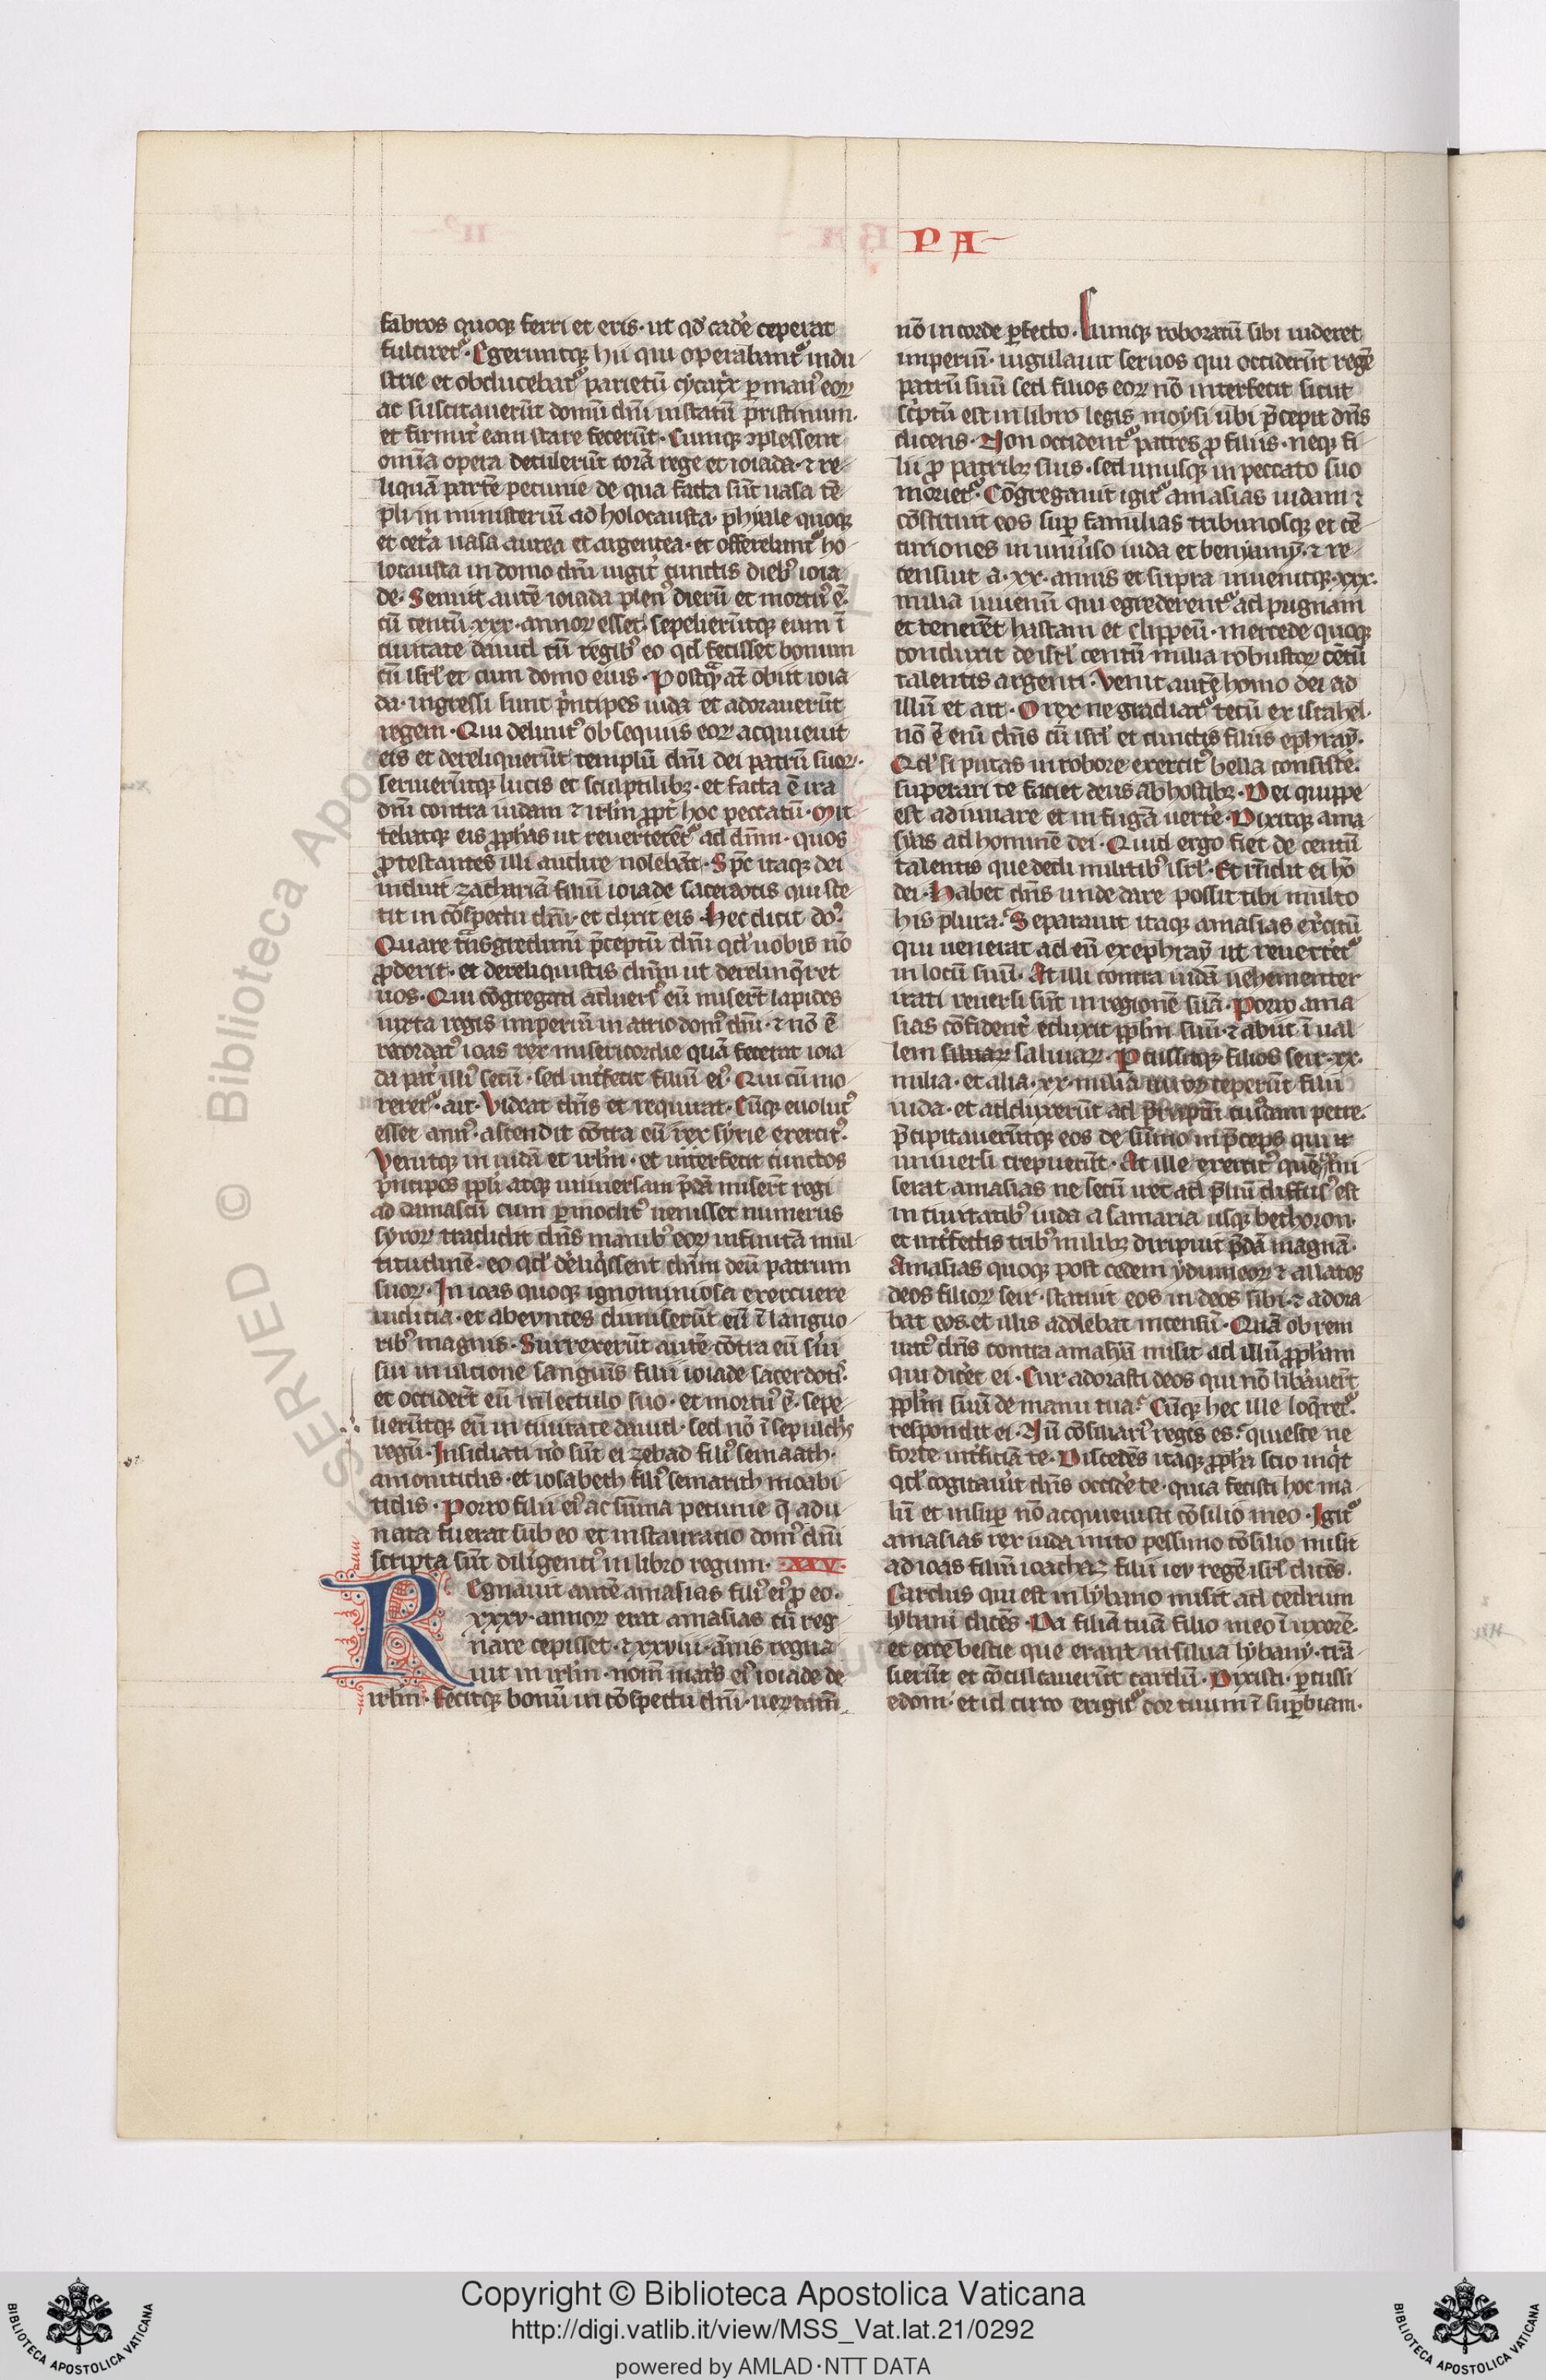 PA
fabros quoq; ferri et eris· ut qd' cad'e ceperat
fulciret᷑· Egeruntq; hii qui operabant᷑ indu
strie et obducebat᷑ parietū cycat'x p man᷒ eoꝝ
ac suscitauerūt domū dn̄i in statū pristinum·
et firmit' eam stare fecerūt· Cumq; ↄplessent
om̄ia opera detulerūt corā rege et ioiada· ⁊ re
liquā partē pecunie de qua facta sūt uasa tē
pli in ministeriū ad holocausta· phyale quoq;
et cet'a uasa aurea et argentea· et offerebant᷑ ho
locausta in domo dn̄i iugit' cunctis dieb᷒ ioia
de· Senuit autē ioiada plen᷒ dierū et mortu᷒ ē·
cū centū xxx· annoꝝ esset· sepelierūtq; eum ī
ciuitate dauid cū regib᷒ eo qd' fecisset bonum
cū isrl' et cum domo eius· Postqᷓ at̄ obiit ioia
da· ingressi sunt p'ncipes iuda et adorauerūt
regem· Qui delinit᷒ obsequiis eoꝝ acquieuit
eis et dereliquerūt templū dn̄i dei patrū suoꝝ·
seruierūtq; lucis et sculptilibꝫ· et facta ē ira
dn̄i contra iudam ⁊ irlm̄ ꝓpt' hoc peccatū· Mit
tebatq; eis ꝓphas ut reuerterēt᷑ ad dn̄m· quos
ꝓtestantes illi audire nolebāt· Sp̄c itaq; dei
induit zachariā filiū ioiade sacerdotis qui ste
tit in cōspectu dn̄i· et dixit eis· Hec dicit do᷒·
Quare tᷓnsgredimī p̄ceptū dn̄i qd' uobis nō
ꝓderit· et dereliquistis dn̄m ut derelinq'ret
uos· Qui cōgregati aduers᷒ eū miser̄t lapides
iuxta regis imperiū in atrio dom᷒ dn̄i· ⁊ nō ē
recordat᷒ ioas rex misericordie quā fecerat ioia
da pat' illi᷒ secū· sed int'fecit filiū ei᷒· Qui cū mo
reret᷑· ait· Videat dn̄s et requirat· Cūq; euolut᷒
esset ann᷒· ascendit cōtra eū rex syrie exercit᷒·
Venitq; in iudā et irlm̄· et interfecit cunctos
p'ncipes ppli atq; uniuersam p̄dā miser̄t regi
ad damascū cum ꝑmodic᷒ uenisset numerus
syroꝝ tradidit dn̄s manib᷒ eoꝝ infinitā mul
titudinē· eo qd' d'eliq'ssent dn̄m deū patrum
suoꝝ· In ioas quoq; ignominiosa exercuere
iudicia· et abeuntes dimiserūt eū ī languo
rib᷒ magnis· Surrexerūt autē cōtra eū s'ui
sui in ulcione sanguīs filii ioiade sacerdotis·
et occider̄t eū in lectulo suo· et mortu᷒ ē· sepe
lierūtq; eū in ciuitate dauid· sed nō ī sepulch's
regū· Insidiati u'o sūt ei zebad fili᷒ semaath·
amonitidis· et iosabeth fili᷒ semarith moabi
tidis· Porro filii ei᷒ ac sūma pecunie q̄ adu
nata fuerat sub eo et instauratio dom᷒ dn̄i
scripta sūt diligenti᷒ in libro regum· XXV·
Regnauit autē amasias fili᷒ ei᷒ ꝓ eo·
xxxv· annoꝝ erat amasias cū reg
nare cepisset· ⁊ xxviiii· ānis regna
uit in irlm̄· nom̄ mat's ei᷒ ioiade de
irlm̄· Fecitq; bonū in cōspectu dn̄i· uerūtam̄
nō in corde ꝑfecto· Cumq; roboratū sibi uideret
imperiū· iugulauit seruos qui occiderūt regē
patrū suū sed filios eoꝝ nō interfecit sicut
sc'ptū est in libro legis moysi ubi p̄cepit dn̄s
dicens· Non occident᷑ patres ꝓ filiis· neq; fi
lii ꝓ patribꝫ suis· sed unusq; in peccato suo
moriet᷑· Cōgregauit igit᷑ amasias iudam ⁊
cōstituit eos suꝑ familias tribunosq; et cē
turiones in uniu'so iuda et benyamī· ⁊ re
censuit a· xx· annis et supra inuenitq; xxx·
milia iuuenū qui egrederent᷑ ad pugnam
et tenerēt hastam et clippeū· mercede quoq;
conduxit de isrl' centū milia robustoꝝ cētū
talentis argenti· Venit autē homo dei ad
illū et ait· O rex ne gradiat᷑ tecū ex israhel·
nō ē enī dn̄s cū isrl' et cunctis filiis ephraȳ·
Qd' si putas in robore exercit᷒ bella consist'e·
superari te faciet deus ab hostibꝫ· Dei quippe
est adiuuare et in fugā uert'e· Dixitq; ama
syas ad hominē dei· Quid ergo fiet de centū
talentis que dedi militib᷒ isrl'· Et rn̄dit ei hō
dei· Habet dn̄s unde dare possit tibi multo
his plura· Separauit itaq; amasias ex'citū
qui uenerat ad eū ex ephraȳ ut reuert'et᷑
in locū suū· At illi contra iudā uehementer
irati reuersi sūt in regionē suā· Porro ama
sias cōfident' eduxit pplm̄ suū· ⁊ abiit ī ual
lem siluaꝝ saluiaꝝ· Pcussitq; filios seir· xx·
milia· et alia· xx· milia uiroꝝ ceperūt filii
iuda· et adduxerūt ad p̄ruptū cui᷒dam petre·
p̄cipitauerūtq; eos de sūmo in p̄ceps qui 
uniuersi crepuerūt· At ille exercit᷒ quē remi
serat amasias ne secū iret ad p̄liū diffus᷒ est
in ciuitatib᷒ iuda a samaria usq; bethoron·
et int'fectis trib᷒ milibꝫ diripuit p̄dā magnā·
Amasias quoq; post cedem ydumeoꝝ ⁊ allatos
deos filioꝝ seir· statuit eos in deos sibi· ⁊ adora
bat eos· et illis adolebat incensū· Quā ob rem
irat᷒ dn̄s contra amasyā misit ad illū ꝓpham
qui dic'et ei· Cur adorasti deos qui nō lib'auer̄t
pplm̄ suū de manu tua· Cūq; hec ille loq'ret᷑·
respondit ei· Nū cōsiliari᷒ regis es· quiesce ne
forte int'ficiā te· Discedēs itaq; ꝓpha scio inq't
qd' cogitauit dn̄s occid'e te· quia fecisti hoc ma
lū et insuꝑ nō acquieuisti cōsilio meo· Igit᷑
amasias rex iuda inito pessimo cōsilio misit
ad ioas filiū ioachaz filii ieu regē isrl' dicēs·
Cardus qui est in lybano misit ad cedrum
lybani dicēs· Da filiā tuā filio meo ī uxorē·
et ecce bestie que erant in silua lybany· trā
sierūt et cōculcauerūt cardū· Dixisti· ꝑcussi
edom· et id circo erigit᷑ cor tuum ī suꝑbiam·
© Biblioteca Apos
Copyright © Biblioteca Apostolica Vaticana
http://digi.vatlib.it/view/MSS_Vat.lat.21/0292
powered by AMLAD·NTT DATA
BIBLIOTECA APOSTOLICA VATICANA
BIBLIOTECA APOSTOLICA VATICANA